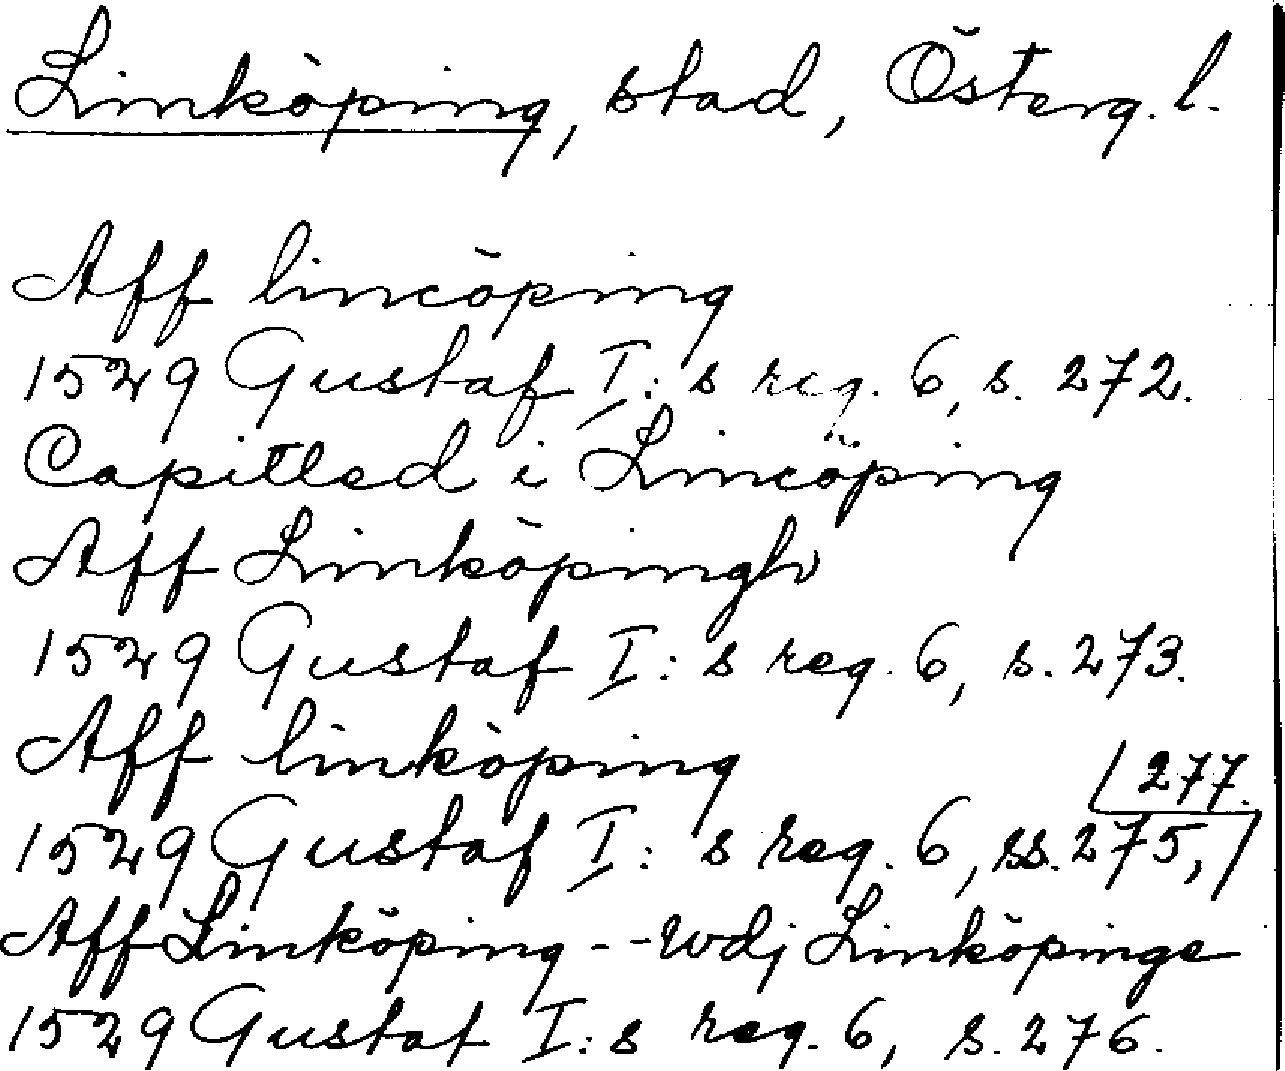 Linköping, stad, Österg. l.
Aff lincöping
1529 Gustaf I:s reg. 6, s. 272.
Capitled i Lincöping
Aff Linköpingh
1529 Gustaf I:s reg. 6, s. 273.
Aff linköping
1529 Gustaf I:s reg. 6, ss. 275, 277.
Aff Linköping -- wdj Linköpinge
1529 Gustaf I:s reg. 6, s. 276.